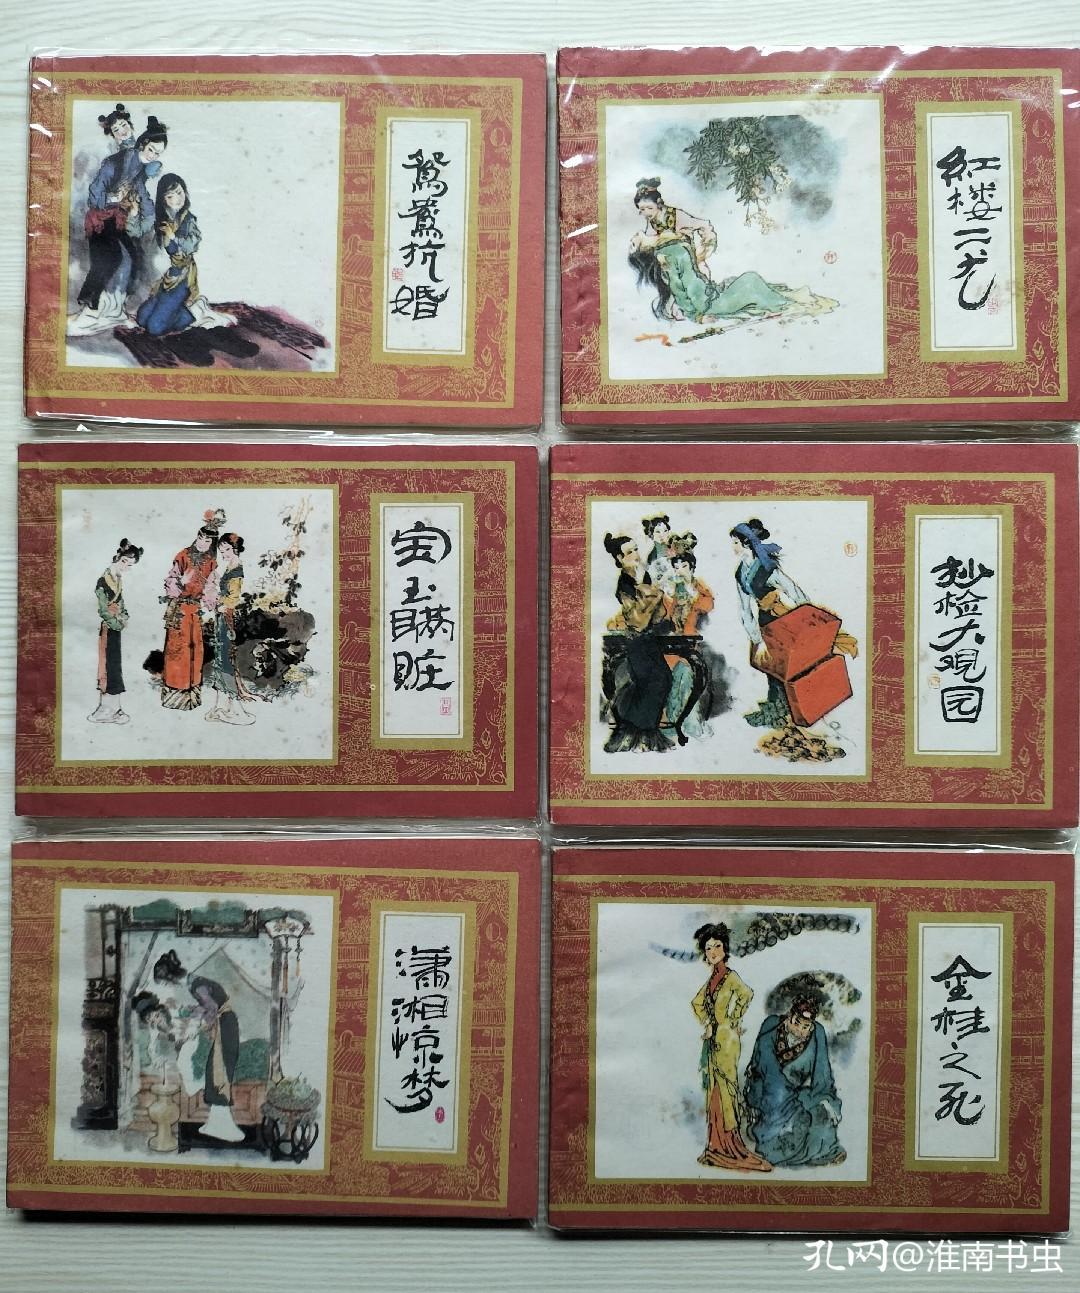 鸳鸯抗婚
红楼二尤
宝玉瞒赃
抄检大观园
潇湘惊梦
金桂之死
孔网@淮南书虫